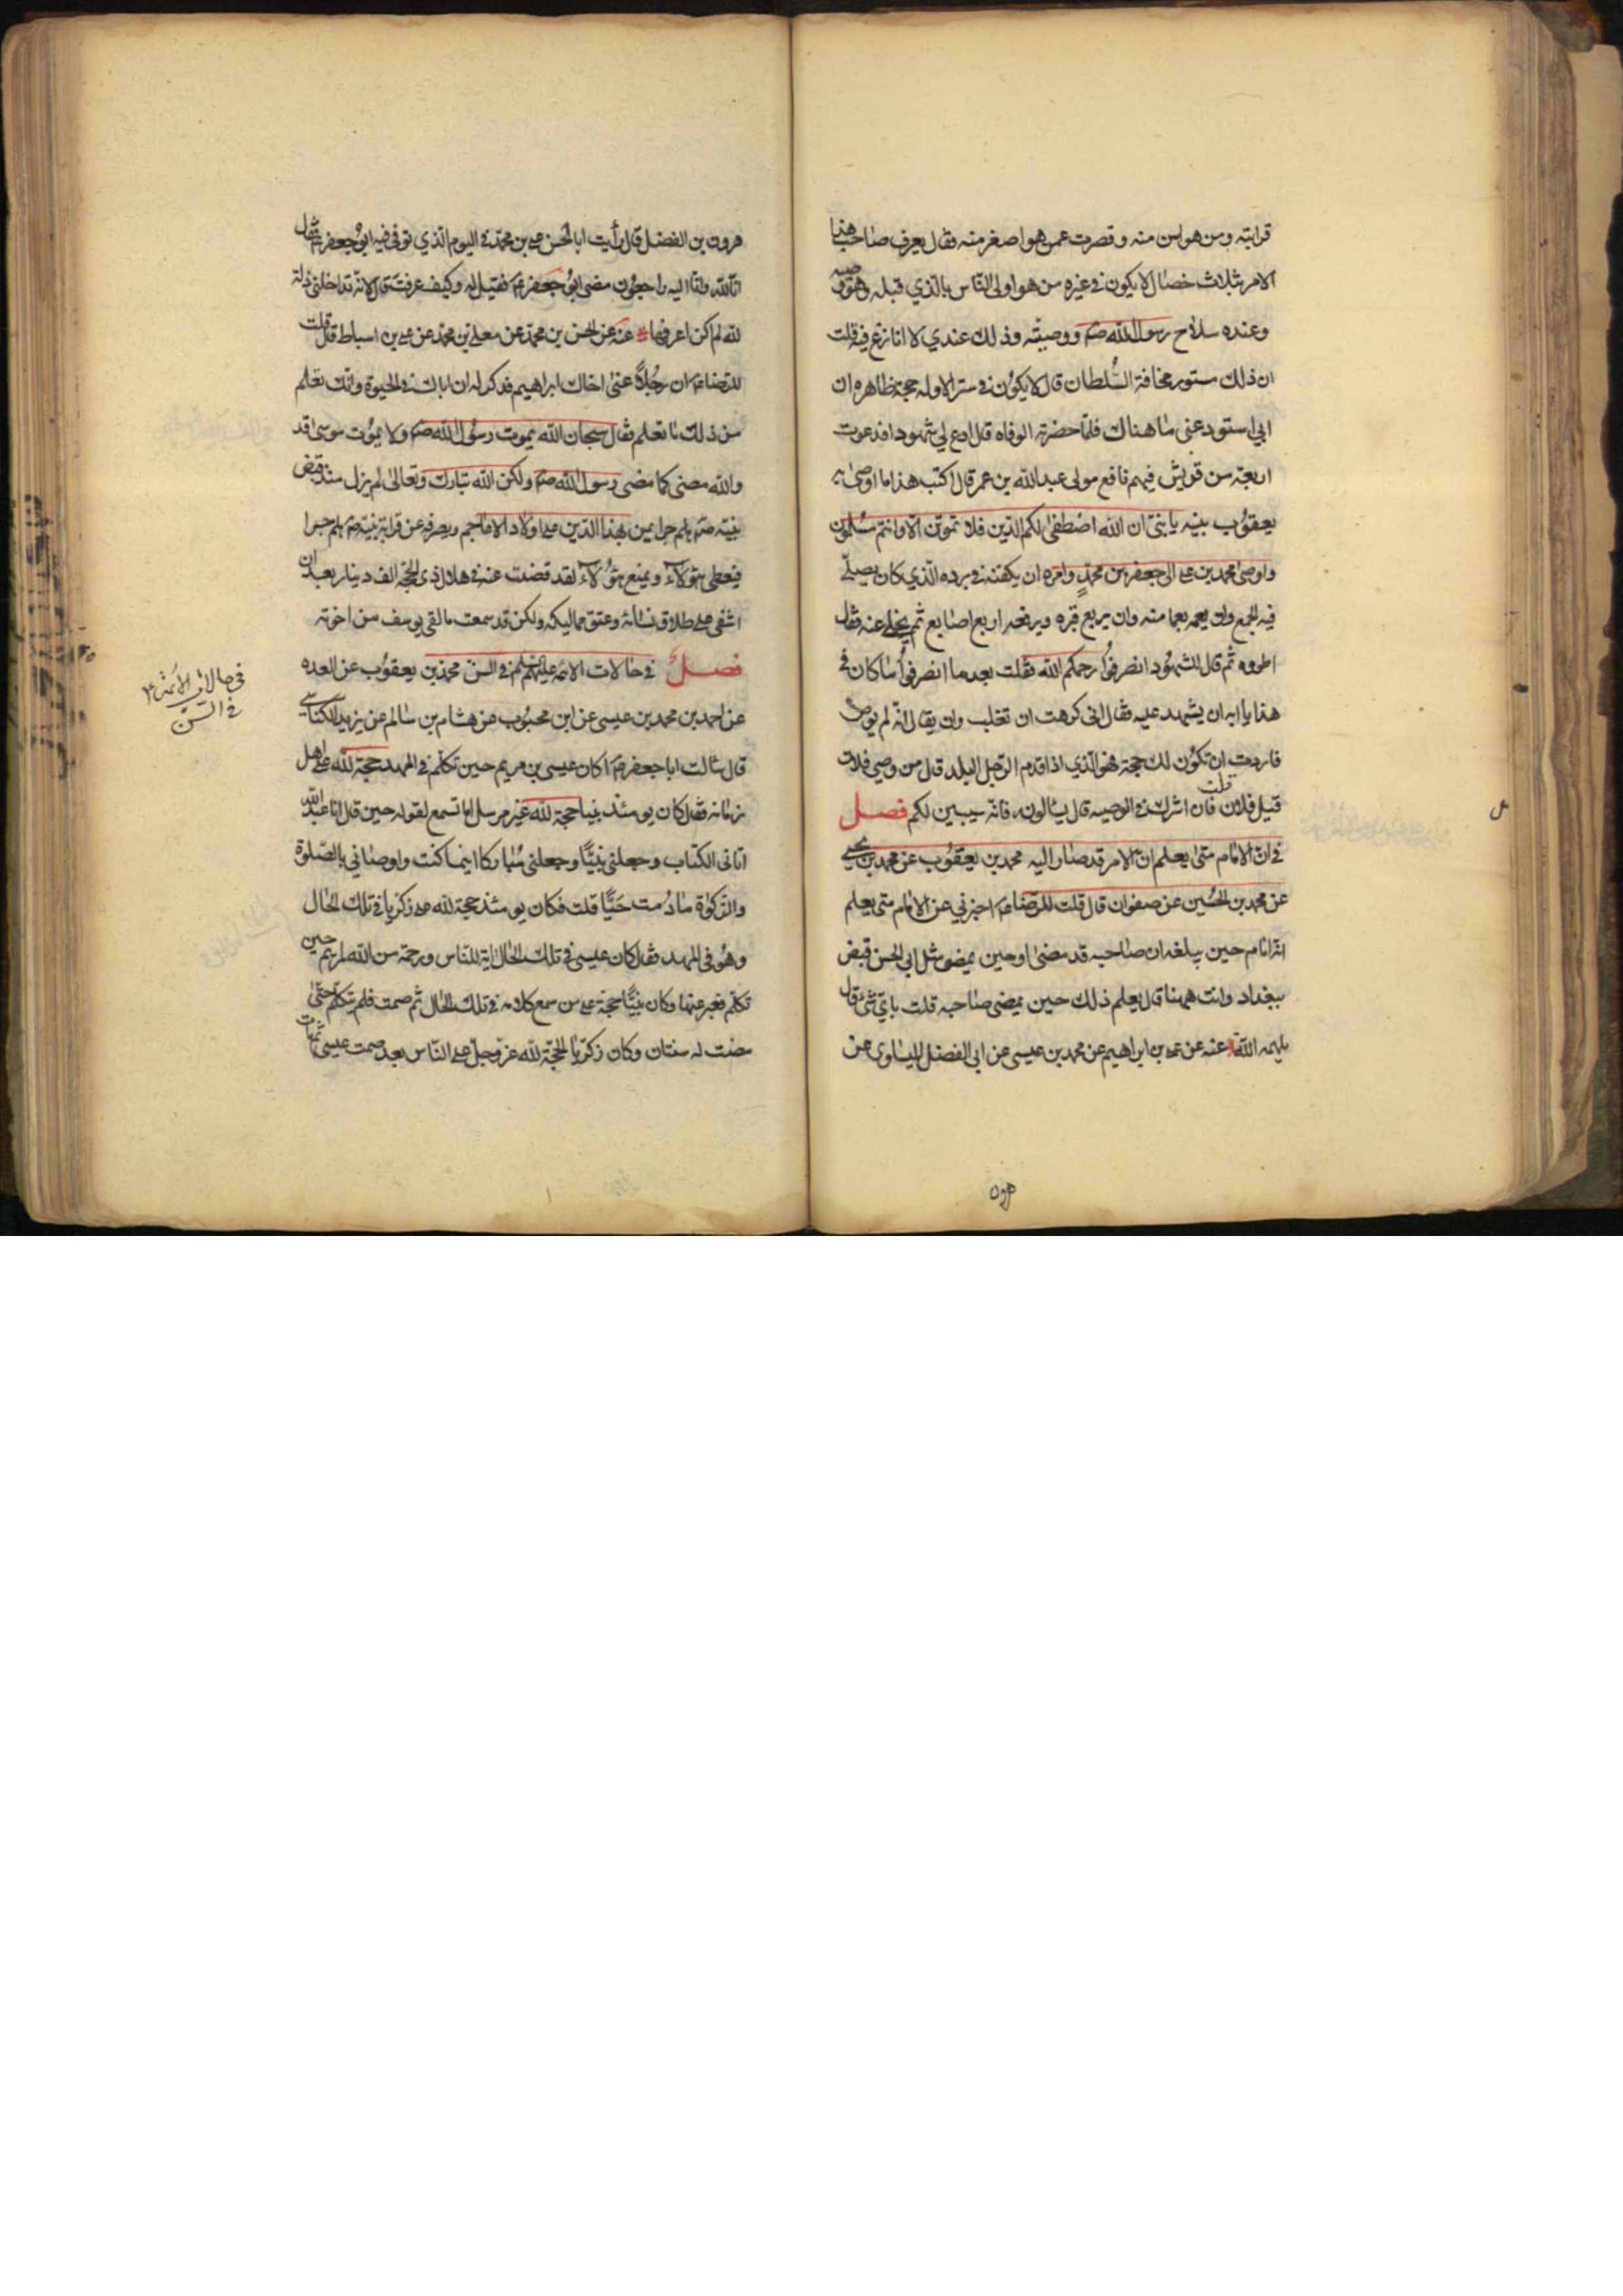 قرابته ومن هو اسن منه وقصرت عمن هو اصغر منه فقال يعرف صاحب هذا
الامر بثلاث خصال لا يكون في غيره من هو اولى الناس بالذي قبله وهو وصيه
وعنده سلاح رسول الله صم ووصيته وذلك عندي لا انازع فيه قلت
ان ذلك مستور مخافة السلطان قال لا يكون في ستر الا وله حجة ظاهره ان
ابي استودعني ما هناك فلما حضرته الوفاه قال ادع لي شهودا فدعوت
اربعة من قريش فيهم نافع مولى عبدالله بن عمر قال اكتب هذا ما اوصى به
يعقوب بنيه يا بني ان الله اصطفى لكم الدين فلا تموتن الا وانتم مسلمون
واوصى محمد بن علي الى جعفر بن محمد وامره ان يكفنه في برده الذي كان يصلي
فيه الجمع وان يعمه بعمامته وان يربع قبره ويرفعه اربع اصابع ثم يخلي عنه فقال
اطووه ثم قال للشهود انصرفوا رحمكم الله فقلت بعد ما انصرفوا ما كان في
هذا يا ابه ان يشهد عليه فقال اني كرهت ان تغلب وان يقال انه لم يوص
فاردت ان تكون لك حجة فهو الذي اذا قدم الرجل البلد قال من وصي فلان
قيل فلان قلت فان اشرك في الوصيه قال يسالونه فانه سيبين لكم فصل
في ان الامام متى يعلم ان الامر قد صار اليه محمد بن يعقوب عن محمد بن يحيى
عن محمد بن الحسين عن صفوان قال قلت للرضا عم اخبرني عن الامام متى يعلم
انه امام حين يبلغه ان صاحبه قد مضى او حين يمضي مثل ابي الحسن قبض
ببغداد وانت ههنا قال يعلم ذلك حين يمضي صاحبه قلت باي شئ قال
يلهمه الله عنه عن علي بن ابراهيم عن محمد بن عيسى عن ابي الفضل عن
هرون بن الفضل قال رأيت ابا الحسن علي بن محمد في اليوم الذي توفي فيه ابو جعفر عم فقال
انا لله وانا اليه راجعون مضى ابو جعفر عم فقيل له وكيف عرفت قال لانه تداخلني ذلة
لله لم اكن اعرفها عنه عن الحسين بن محمد عن معلى بن محمد عن علي بن اسباط قال قلت
للرضا عم ان رجلا عنى اخاك ابراهيم فذكر له ان اباك في الحيوة وانك تعلم
من ذلك ما تعلم فقال سبحان الله يموت رسول الله صم ولا يموت موسى قد
والله مضى كما مضى رسول الله صم ولكن الله تبارك وتعالى لم يزل منذ قبض
نبيه صم هلم جرا يمن بهذا الدين على اولاد الاعاجم ويصرفه عن قرابة نبيه صم هلم جرا
فيعطى هؤلاء ويمنع هؤلاء لقد قضيت عنه في هلال ذي الحجة الف دينار بعد ان
اشفى على طلاق نسائه وعتق مماليكه ولكن قد سمعت ما لقي يوسف من اخوته
فصل في حالات الائمه عليهم السلم في السن محمد بن يعقوب عن العده
عن احمد بن محمد بن عيسى عن ابن محبوب عن هشام بن سالم عن يزيد الكناسي
قال سالت ابا جعفر عم ا كان عيسى بن مريم حين تكلم في المهد حجة لله على اهل
زمانه فقال كان يومئذ نبيا حجة لله غير مرسل اما تسمع لقوله حين قال انا عبد الله
اتاني الكتاب وجعلني نبيا وجعلني مباركا اينما كنت واوصاني بالصلوة
والزكوة ما دمت حيا قلت فكان يومئذ حجة لله على زكريا في تلك الحال
وهو في المهد فقال كان عيسى في تلك الحال اية للناس ورحمة من الله لمريم حين
تكلم فعبر عنها وكان نبيا حجة على من سمع كلامه في تلك الحال ثم صمت فلم يتكلم حتى
مضت له سنتان وكان زكريا الحجة لله عز وجل على الناس بعد صمت عيسى ثم مات
في حالات الائمة ع
في السن